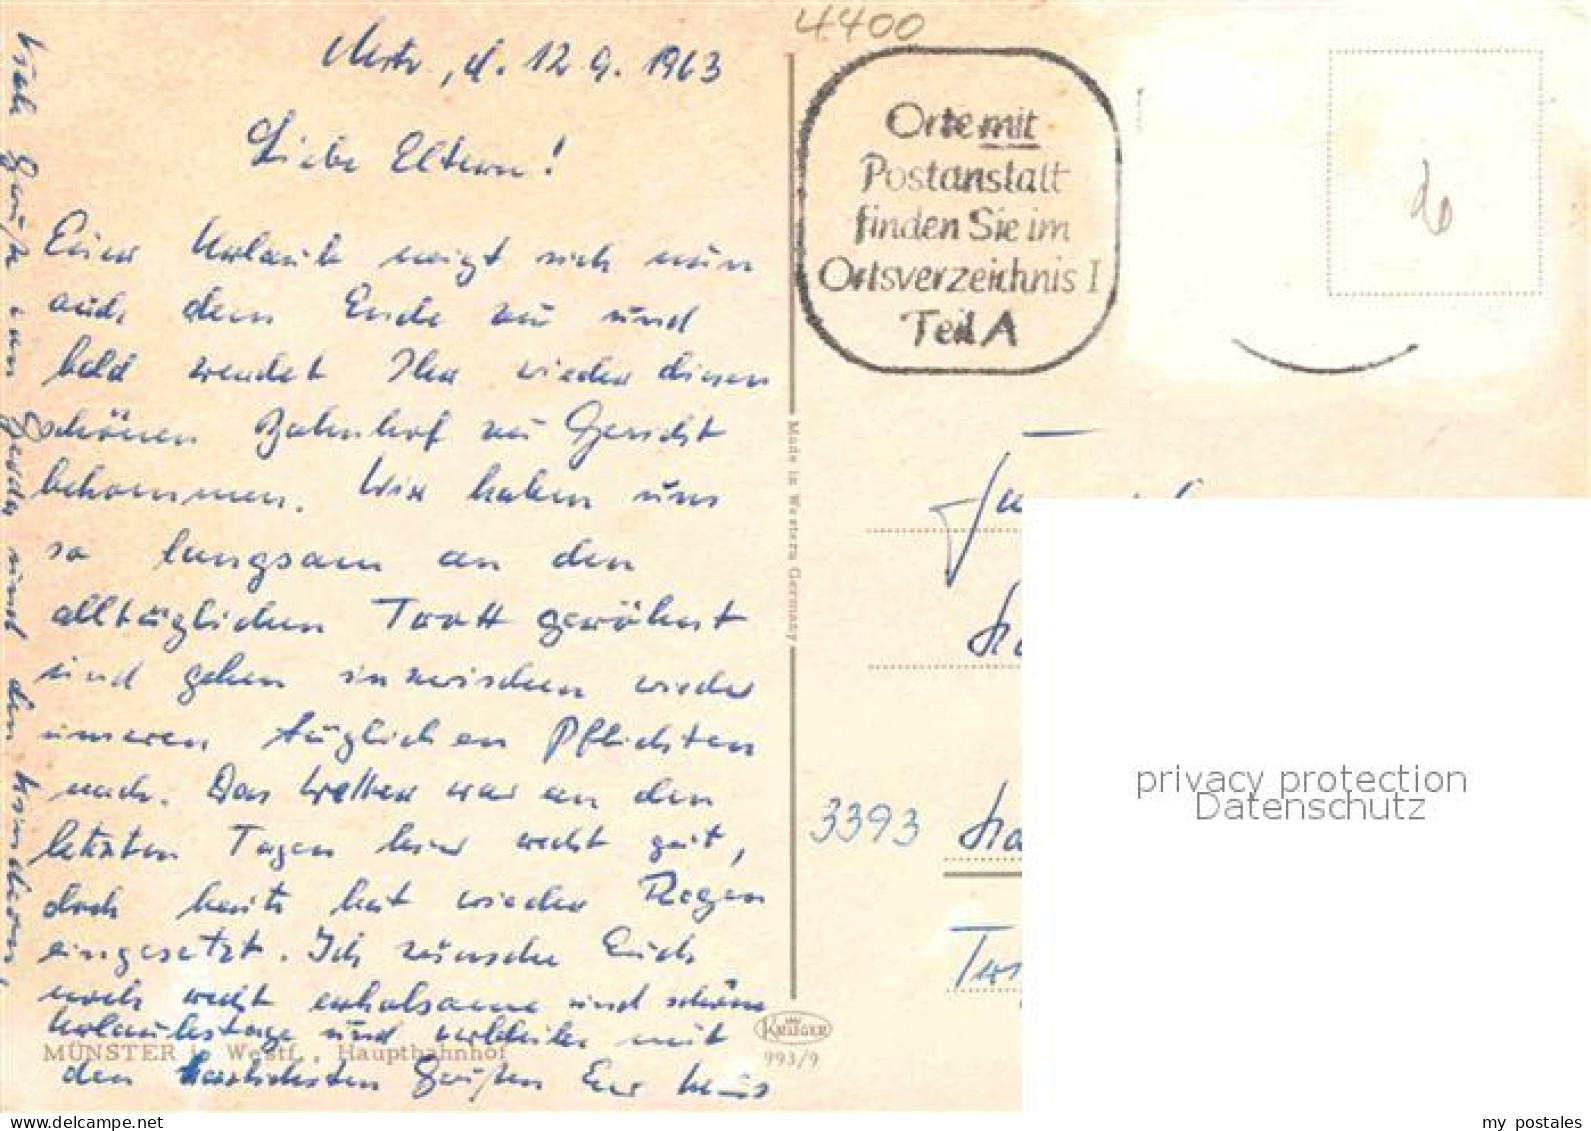 4400
Mstr., d. 12. 9. 1963
Liebe Eltern!
Euer Urlaub neigt sich nun
auch dem Ende zu und
bald werdet Ihr wieder diesen
schönen Bahnhof zu Gesicht
bekommen. Wir haben uns
so langsam an den
alltäglichen Trott gewöhnt
und gehen inzwischen wieder
unseren täglichen Pflichten
nach. Das Wetter war in den
letzten Tagen hier recht gut,
doch heute hat wieder Regen
eingesetzt. Ich wünsche Euch
noch recht erholsame und schöne
Urlaubstage und verbleibe mit
den herzlichsten Grüßen Euer Klaus
Viele Grüße von Gerda und den Kindern!
MÜNSTER i. Westf., Hauptbahnhof
Made in Western Germany
KRÜGER
993/9
Orte mit
Postanstalt
finden Sie im
Ortsverzeichnis I
Teil A
3393
privacy protection
Datenschutz
delcampe.net
my_postales